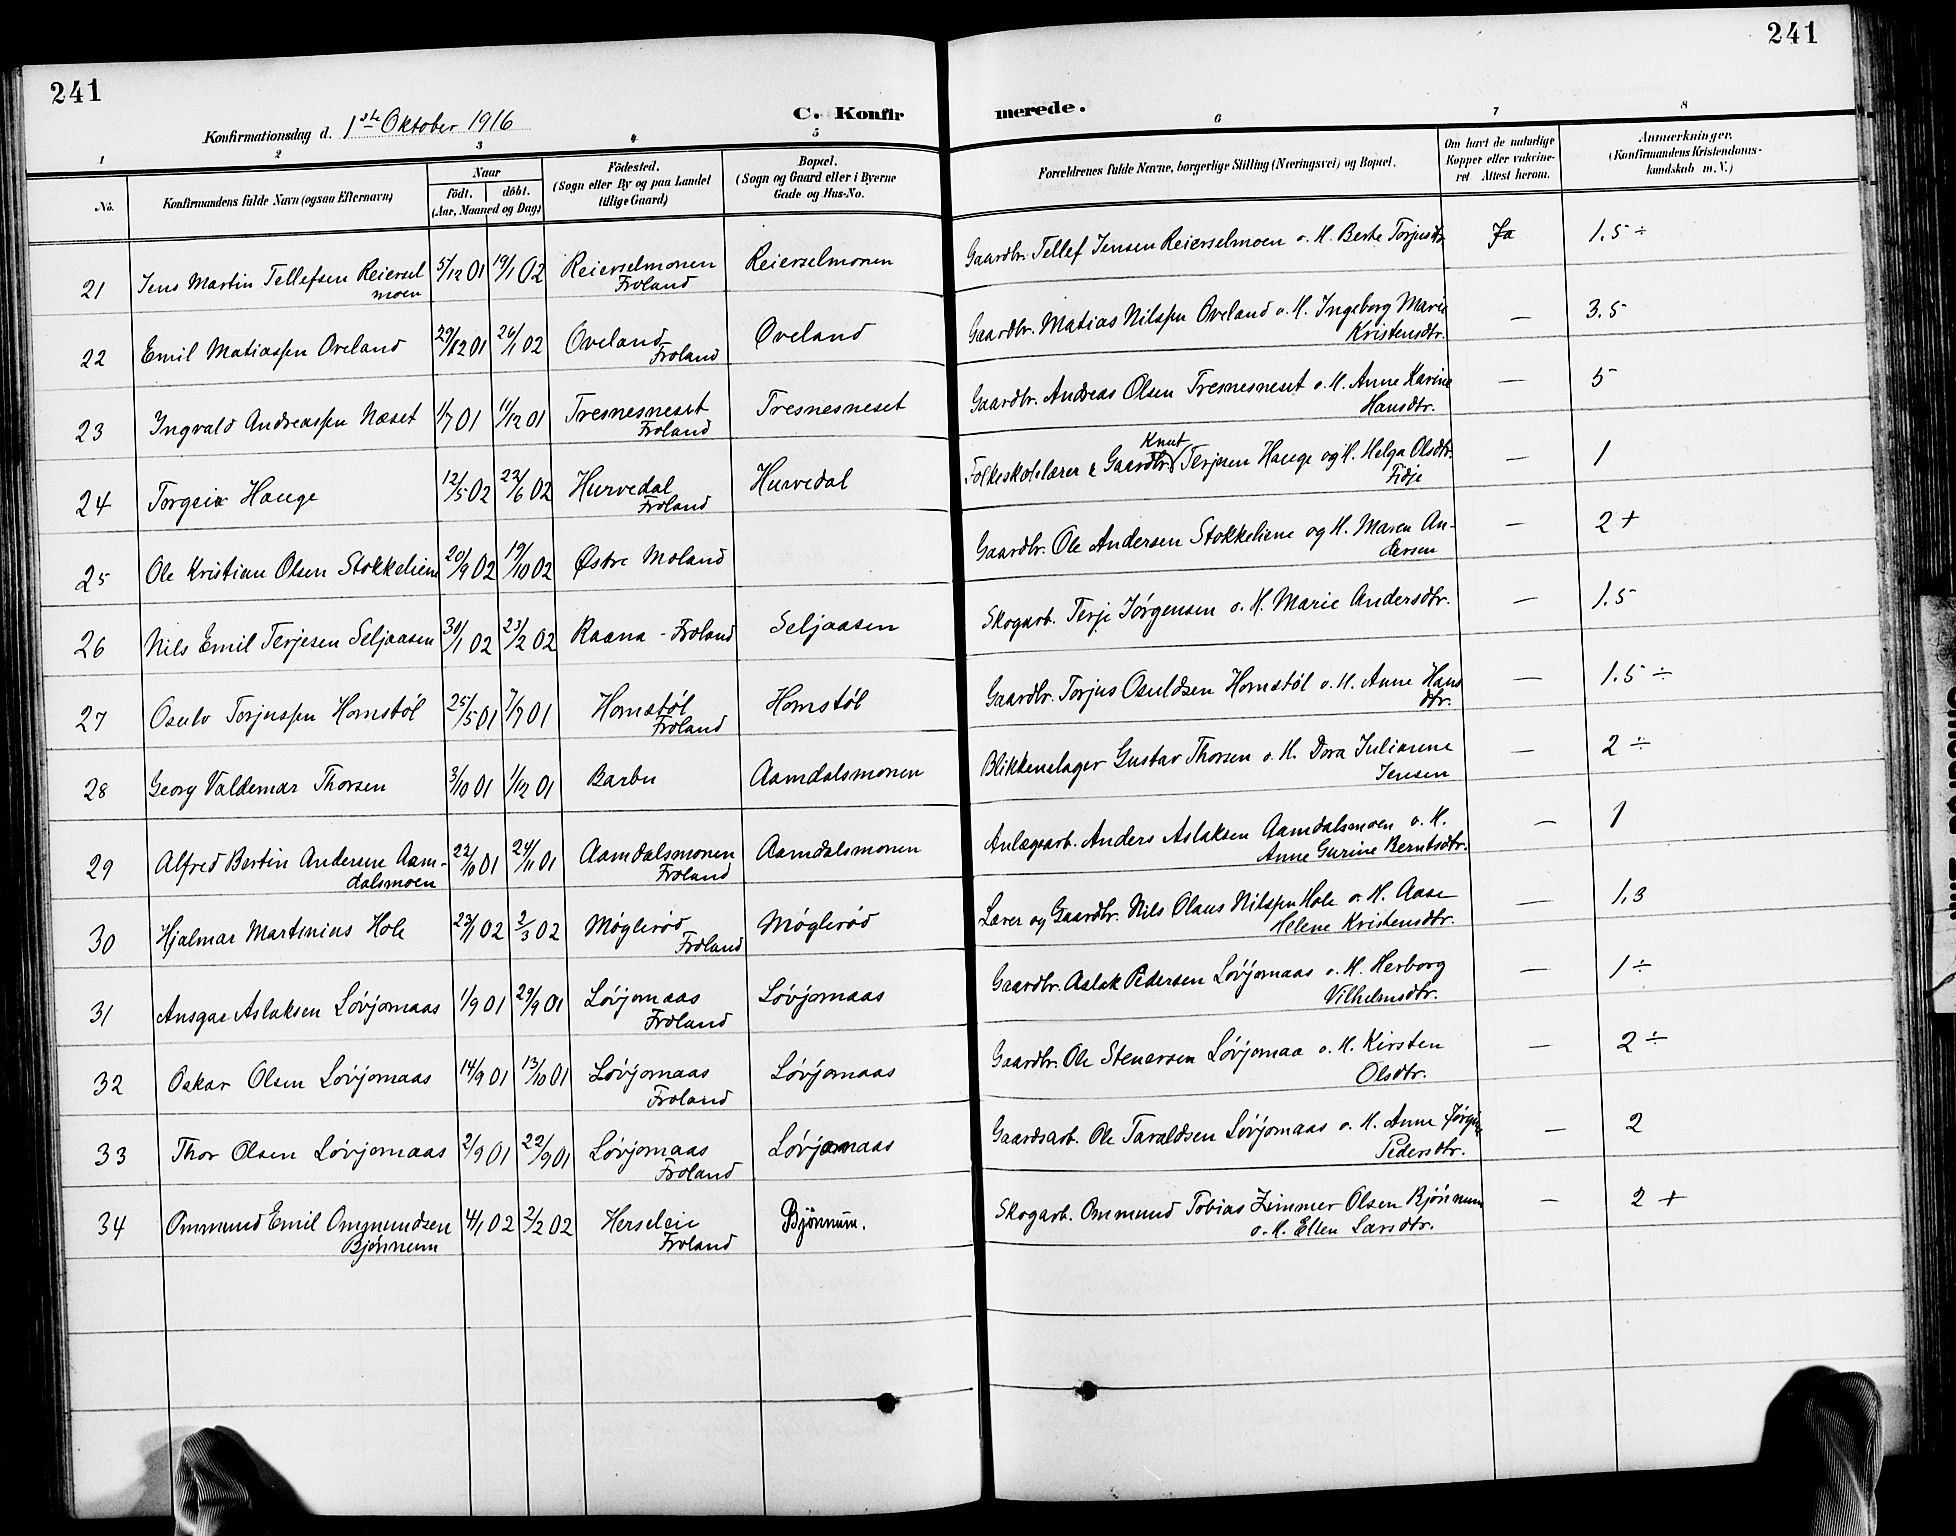 241
241
Konfirmationsdag d. 1ste Oktober 1916
C. Konfirmerede.
1 2 3 4 5 6 7 8
No.
Konfirmandens fulde Navn (ogsaa Efternavn)
Naar
födt. döbt.
(Aar, Maaned og Dag)
Födested.
(Sogn eller By og paa Landet
tillige Gaard)
Bopæl.
(Sogn og Gaard eller i Byerne
Gade og Hus-No.
Forældrenes fulde Navne, borgerlige Stilling (Næringsvei) og Bopæl.
Om havt de naturlige
Kopper eller vaccine-
ret Attest herom.
Anmærkninger.
(Konfirmandens Kristendoms-
kundskab m. V.)
21 Jens Martin Tellefsen Reiersel 5/12 01 19/1 02 Reierselmonen Reierselmonen Gaardbr. Tellef Jensen Reierselmoen o. H. Berte Torjusdtr. Ja 1.5 ÷
moen Froland
22 Emil Matiassen Oveland 29/12 01 26/1 02 Oveland Oveland Gaardbr. Matias Nilssen Oveland o. H. Ingeborg Marie — 3.5
Froland Kristensdtr.
23 Ingvald Andreassen Næset 1/7 01 11/12 01 Tresnesneset Tresnesneset Gaardbr. Andreas Olsen Tresnesneset o. H. Anne Karine — 5
Froland Hansdtr.
Knut
24 Torgeir Hauge 12/5 02 22/6 02 Hurvedal Hurvedal Folkeskolelærer & Gaardbr. Terjesen Hauge og H. Helga Olsdtr. — 1
Froland Fidje
25 Ole Kristian Olsen Stokkeliene 20/9 02 19/10 02 Østre Moland Gaardbr. Ole Andersen Stokkeliene og H. Maren An- — 2 +
dersen
26 Nils Emil Terjesen Seljaasen 30/1 02 23/2 02 Raana - Froland Seljaasen Skogarb. Terje Jørgensen o. H. Marie Andersdtr. — 1.5
27 Osulv Torjussen Homstøl 25/5 01 7/7 01 Homstøl Homstøl Gaardbr. Torjus Osuldsen Homstøl o. H. Anne Hans — 1.5 ÷
Froland dtr.
28 Georg Valdemar Thorsen 3/10 01 1/12 01 Barbu Aamdalsmonen Blikkenslager Gustav Thorsen o. H. Dora Julianne — 2 ÷
Jensen
29 Alfred Bertin Andersen Aam- 22/10 01 24/11 01 Aamdalsmonen Aamdalsmonen Anlægsarb. Anders Aslaksen Aamdalsmoen o. H. — 1
dalsmoen Froland Anne Gurine Berntsdtr.
30 Hjalmar Martinius Hole 23/1 02 2/3 02 Møglerød Møglerød Lærer og Gaardbr. Nils Olaus Nilssen Hole o. H. Aase — 1,3
Froland Helene Kristensdtr.
31 Ansgar Aslaksen Løvjomaas 1/9 01 29/9 01 Løvjomaas Løvjomaas Gaardbr. Aslak Pedersen Løvjomaas o. H. Herborg — 1 ÷
Froland Vilhelmsdtr.
32 Oskar Olsen Løvjomaas 14/9 01 13/10 01 Løvjomaas Løvjomaas Gaardbr. Ole Stenersen Løvjomaa o. H. Kirsten — 2 ÷
Froland Olsdtr.
33 Thor Olsen Løvjomaas 2/9 01 22/9 01 Løvjomaas Løvjomaas Gaardsarb. Ole Taraldsen Løvjomaas o. H. Anne Jørgine — 2
Froland Pedersdtr.
34 Ommund Emil Ommundsen 4/1 02 2/2 02 Herseleie Bjönnum. Skogarb. Ommund Tobias Zimmer Olsen Bjönnum — 2 +
Bjönnum Froland o. H. Ellen Larsdtr.